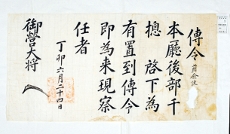 傳令
本廳後部千
摠 啓下爲
有置到傳令
即爲來現察
任者
丁卯六月二十四日
御營大將